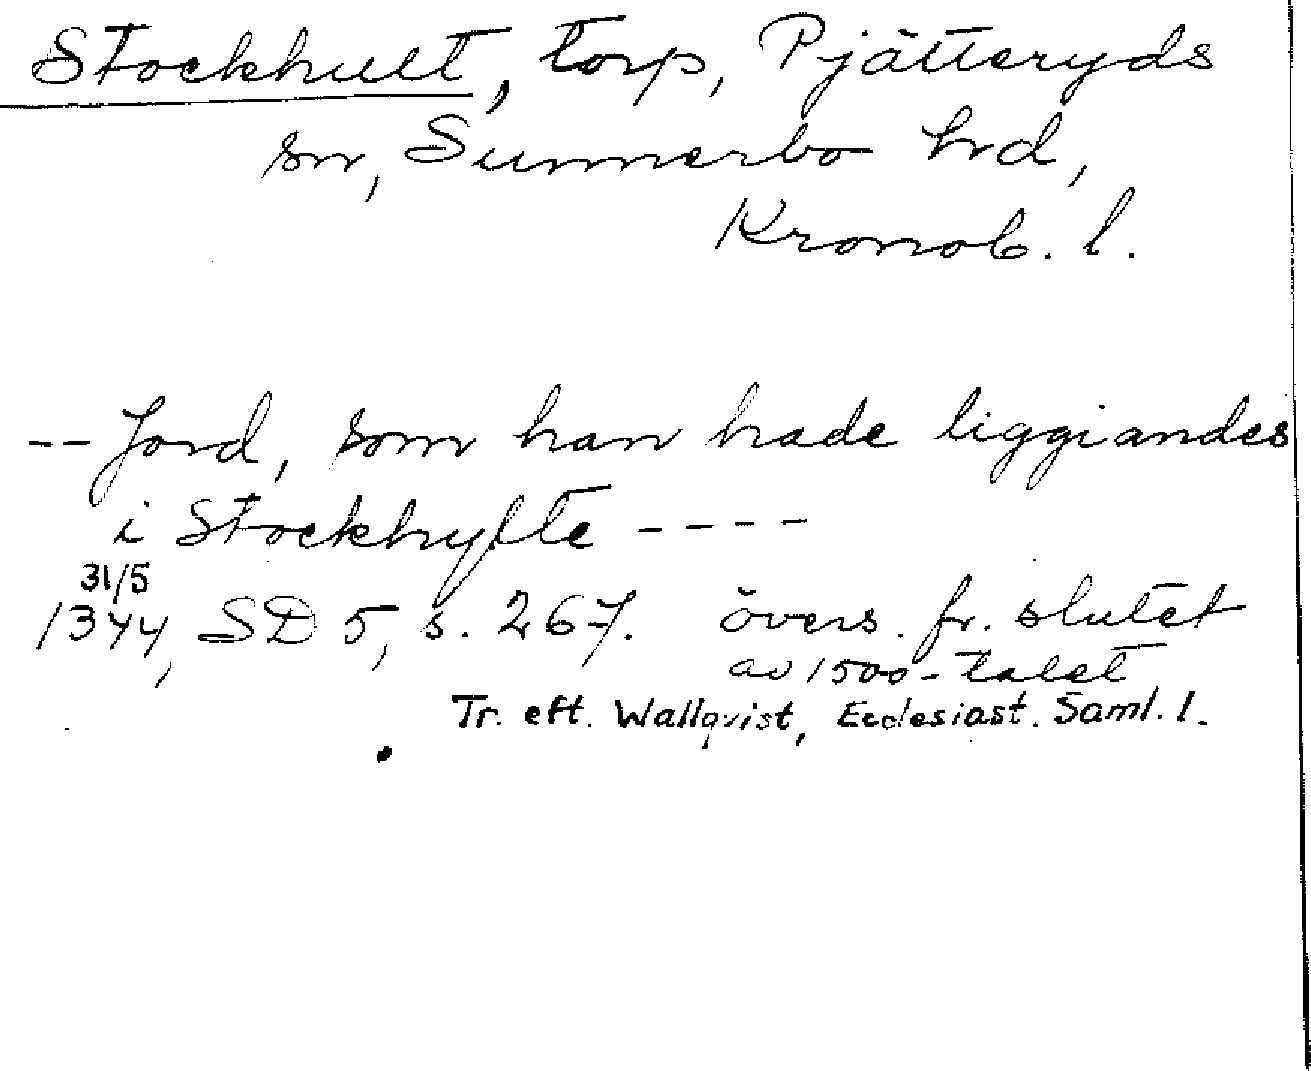 Stockhult, torp, Pjätteryds
sn, Sunnerbo hrd,
Kronob. l.
-- Jord, som han hade liggiandes
i Stockhylte ----
31/5
1344, SD 5, s. 267. övers. fr. slutet
av 1500-talet
Tr. eft. Wallqvist, Ecclesiast. Saml. 1.